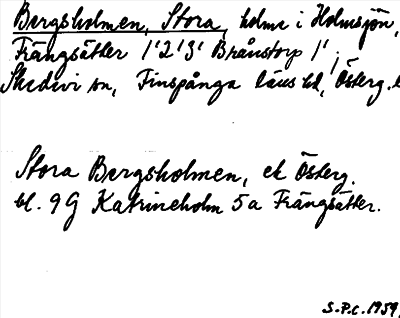 Bergsholmen, Stora, holme i Holmsjön,
Frängsätter 1¹2¹3¹ Brånstorp 1¹,
Skedevi sn, Finspånga läns hd, Österg. l
Stora Bergsholmen, ek Österg.
bl. 9 G Katrineholm 5a Frängsätter.
S.P.C. 1959.